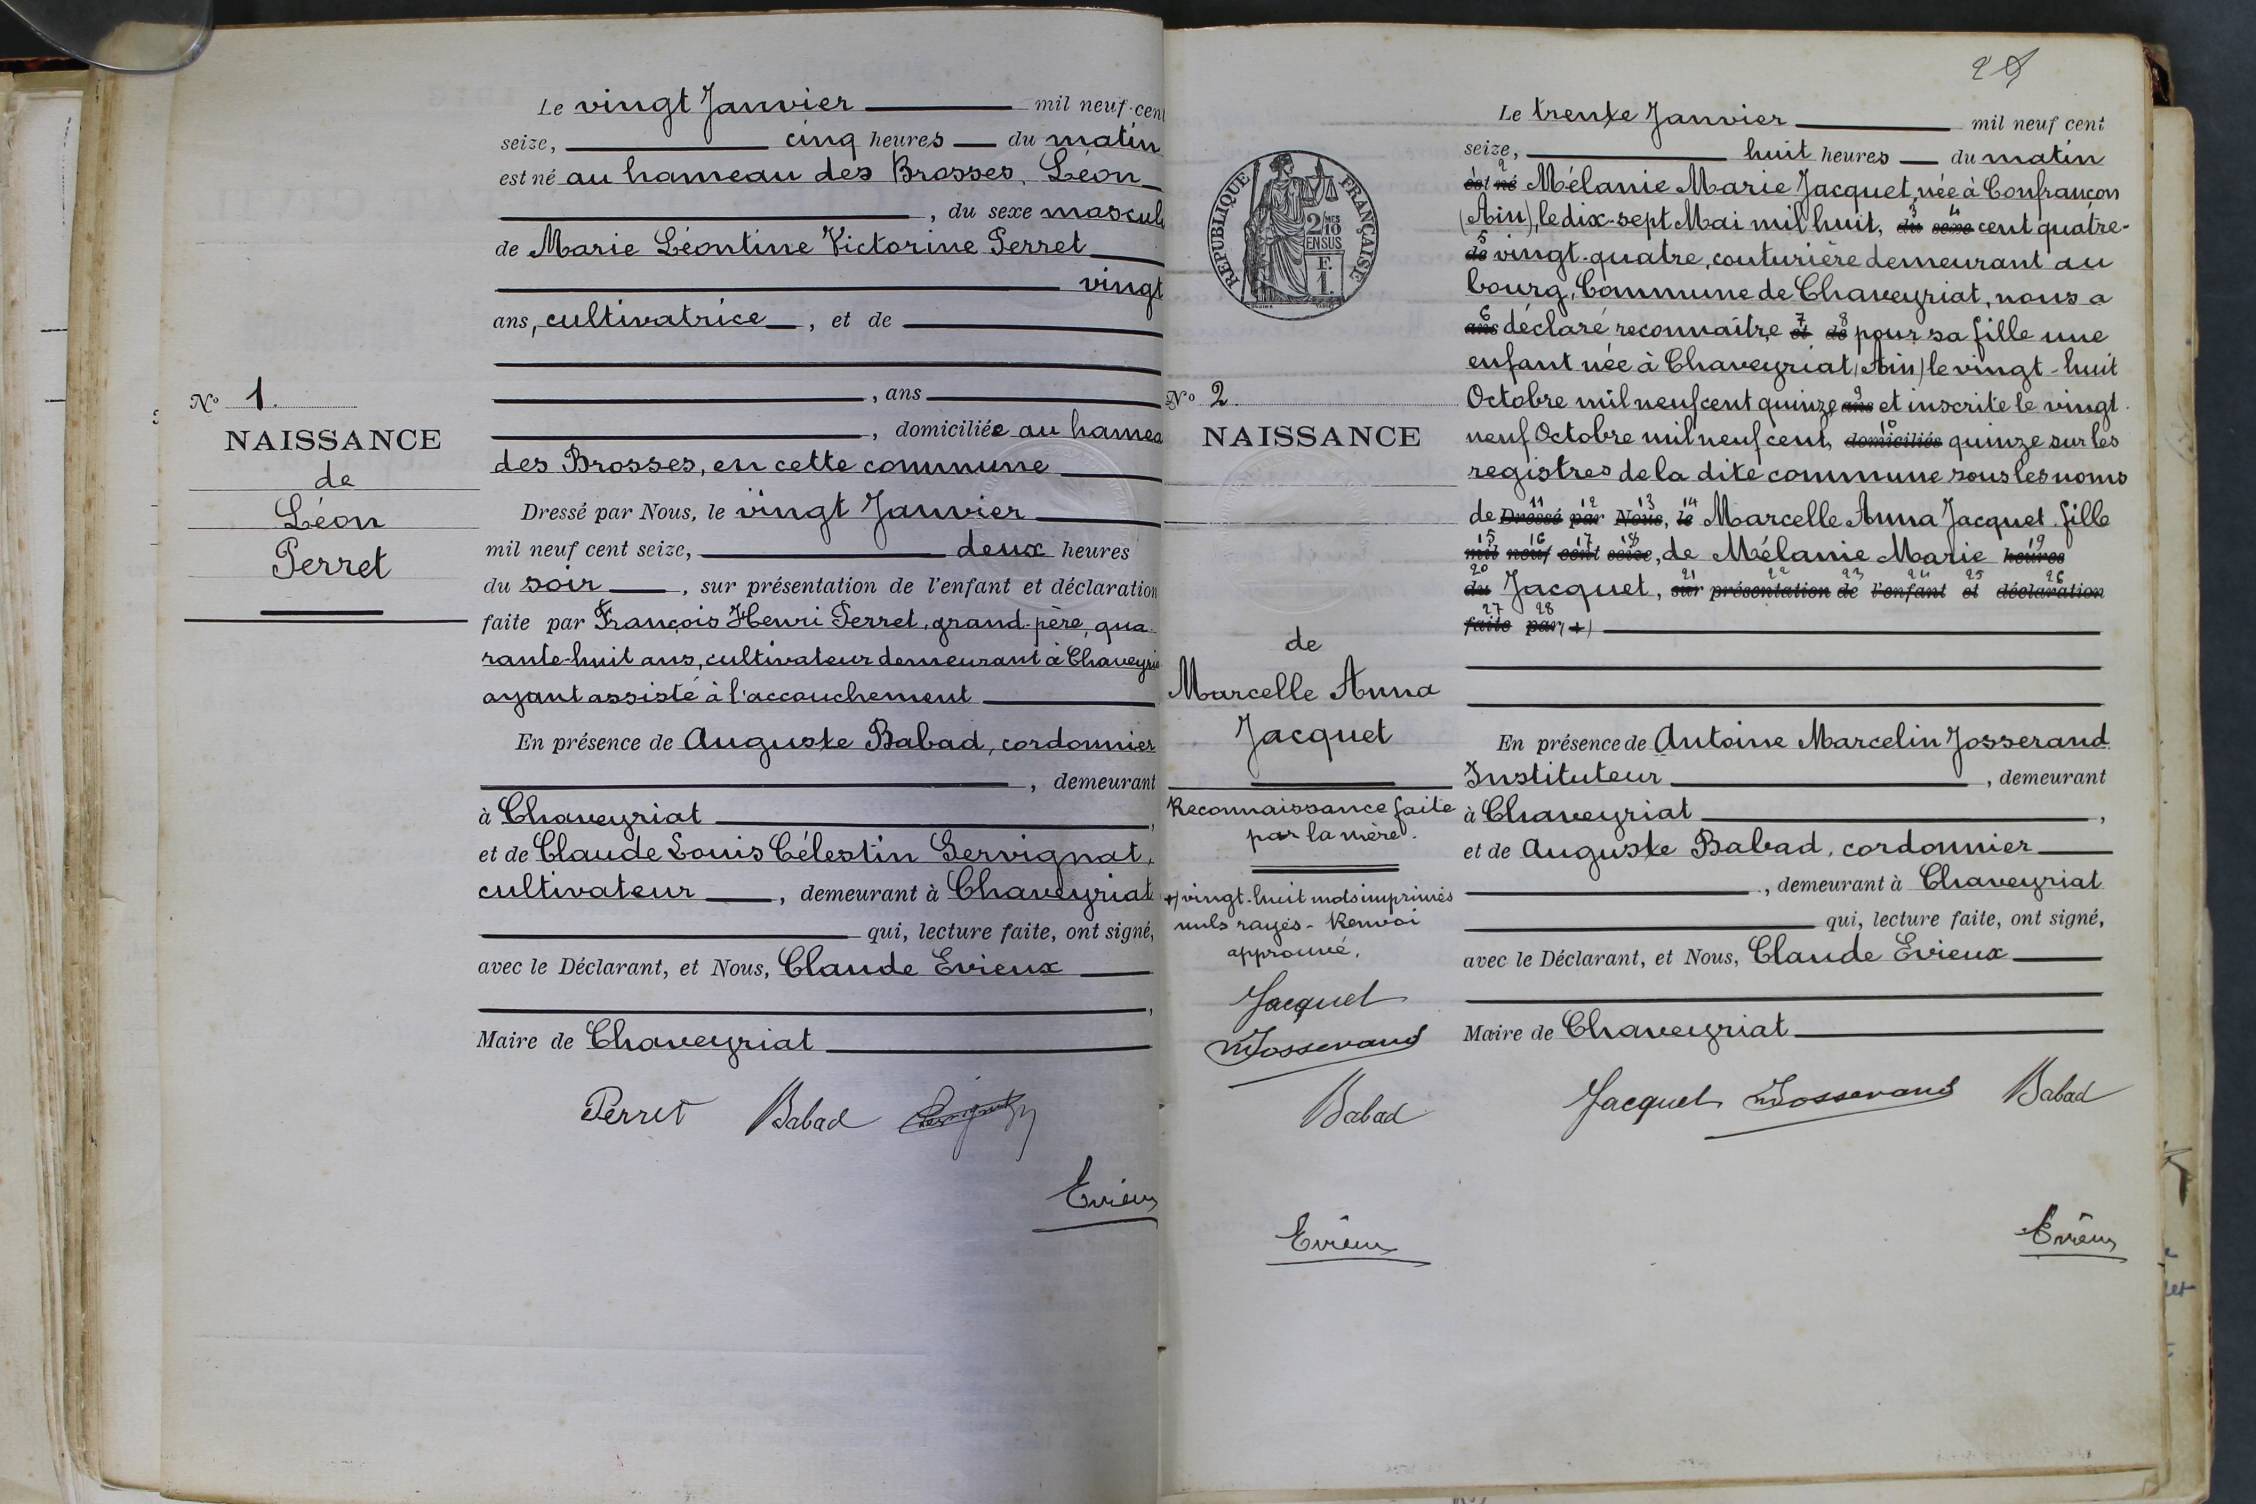 Le vingt Janvier mil neuf cent
seize, cinq heures du matin
est né au hameau des Brosses, Léon
, du sexe mascul
de Marie Léontine Victorine Perret
vingt
ans, cultivatrice, et de
, ans
, domiciliée au hamea
des Brosses, en cette commune
Dressé par Nous, le vingt Janvier
mil neuf cent seize, deux heures
du soir, sur présentation de l'enfant et déclaration
faite par François Henri Perret, grand-père, qua-
rante-huit ans, cultivateur demeurant à Chaveyria
ayant assisté à l'accouchement
En présence de Auguste Babad, cordonnier
, demeurant
à Chaveyriat,
et de Claude Louis Célestin Gervignat,
cultivateur, demeurant à Chaveyriat
qui, lecture faite, ont signé,
avec le Déclarant, et Nous, Claude Evieux
,
Maire de Chaveyriat
Perret Babad
Evieux
No 1.
NAISSANCE
de
Léon
Perret
Le trente Janvier mil neuf cent
seize, huit heures du matin
est né 2 Mélanie Marie Jacquet, née à Confrançon
(Ain), le dix-sept Mai mil huit, du 3 sexe 4 cent quatre-
de 5 vingt-quatre, couturière demeurant au
bourg, Commune de Chaveyriat, nous a
ans 6 déclaré reconnaître et 7 de 8 pour sa fille une
enfant née à Chaveyriat (Ain) le vingt-huit
Octobre mil neuf cent quinze ans 9 et inscrite le vingt-
neuf Octobre mil neuf cent, domiciliés 10 quinze sur les
registres de la dite commune sous les noms
de Dressé 11 par 12 Nous 13, le 14 Marcelle Anna Jacquet fille
mil 15 neuf 16 cent 17 seize 18, de Mélanie Marie heures 19
du 20 Jacquet, sur 21 présentation 22 de 23 l'enfant 24 et 25 déclaration 26
faite 27 par 28 (+)
En présence de Antoine Marcelin Josserand
Instituteur, demeurant
à Chaveyriat,
et de Auguste Babad, cordonnier
, demeurant à Chaveyriat
qui, lecture faite, ont signé,
avec le Déclarant, et Nous, Claude Evieux
Maire de Chaveyriat
Jacquet Josserand Babad
Evieux
RÉPUBLIQUE FRANÇAISE
2/10 MES
EN SUS
F.
1.
No 2
NAISSANCE
de
Marcelle Anna
Jacquet
Reconnaissance faite
par la mère.
+) vingt-huit mots imprimés
nuls rayés - Renvoi
approuvé.
Jacquet
Josserand
Babad
Evieux